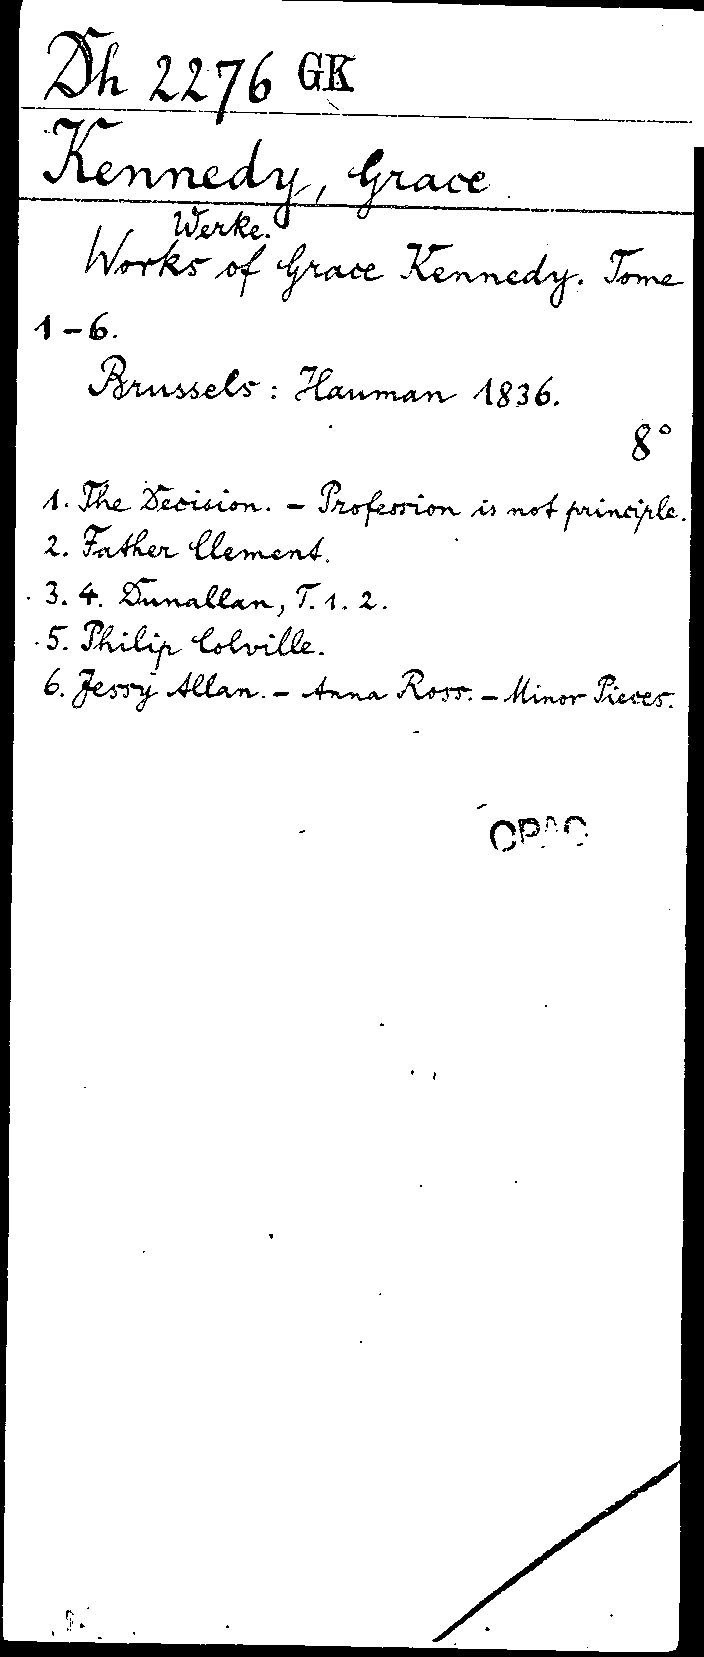 Dh 2276 GK
Kennedy, Grace
Werke.
Works of Grace Kennedy. Tome
1-6.
Brussels: Hauman 1836.
8°
1. The Decision. – Profession is not principle.
2. Father Clement.
3. 4. Dunallan, T. 1. 2.
5. Philip Colville.
6. Jessy Allan. – Anna Ross. – Minor Pieces.
OPAC